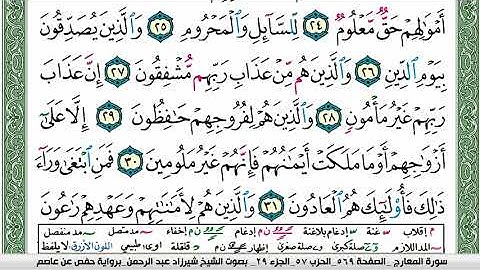 أَمْوَٰلِهِمْ حَقٌّ مَّعْلُومٌ ٢٤ لِّلسَّآئِلِ وَٱلْمَحْرُومِ ٢٥ وَٱلَّذِينَ يُصَدِّقُونَ
بِيَوْمِ ٱلدِّينِ ٢٦ وَٱلَّذِينَ هُم مِّنْ عَذَابِ رَبِّهِم مُّشْفِقُونَ ٢٧ إِنَّ عَذَابَ
رَبِّهِمْ غَيْرُ مَأْمُونٍ ٢٨ وَٱلَّذِينَ هُمْ لِفُرُوجِهِمْ حَٰفِظُونَ ٢٩ إِلَّا عَلَىٰٓ
أَزْوَٰجِهِمْ أَوْ مَا مَلَكَتْ أَيْمَٰنُهُمْ فَإِنَّهُمْ غَيْرُ مَلُومِينَ ٣٠ فَمَنِ ٱبْتَغَىٰ وَرَآءَ
ذَٰلِكَ فَأُو۟لَٰٓئِكَ هُمُ ٱلْعَادُونَ ٣١ وَٱلَّذِينَ هُمْ لِأَمَٰنَٰتِهِمْ وَعَهْدِهِمْ رَٰعُونَ
م إقلاب غنة إدغام بلاغنة ن م إدغام ن م إخفاء مد متصل مد منفصل
المد اللازم صلة كبرى صلة صغرى إظهار ن م قلقلة اوى طبيعي اللون الأزرق لا يلفظ
سورة المعارج _الصفحة ٥٦٩_ الحزب ٥٧_ الجزء ٢٩_ بصوت الشيخ شيرزاد عبد الرحمن_ برواية حفص عن عاصم